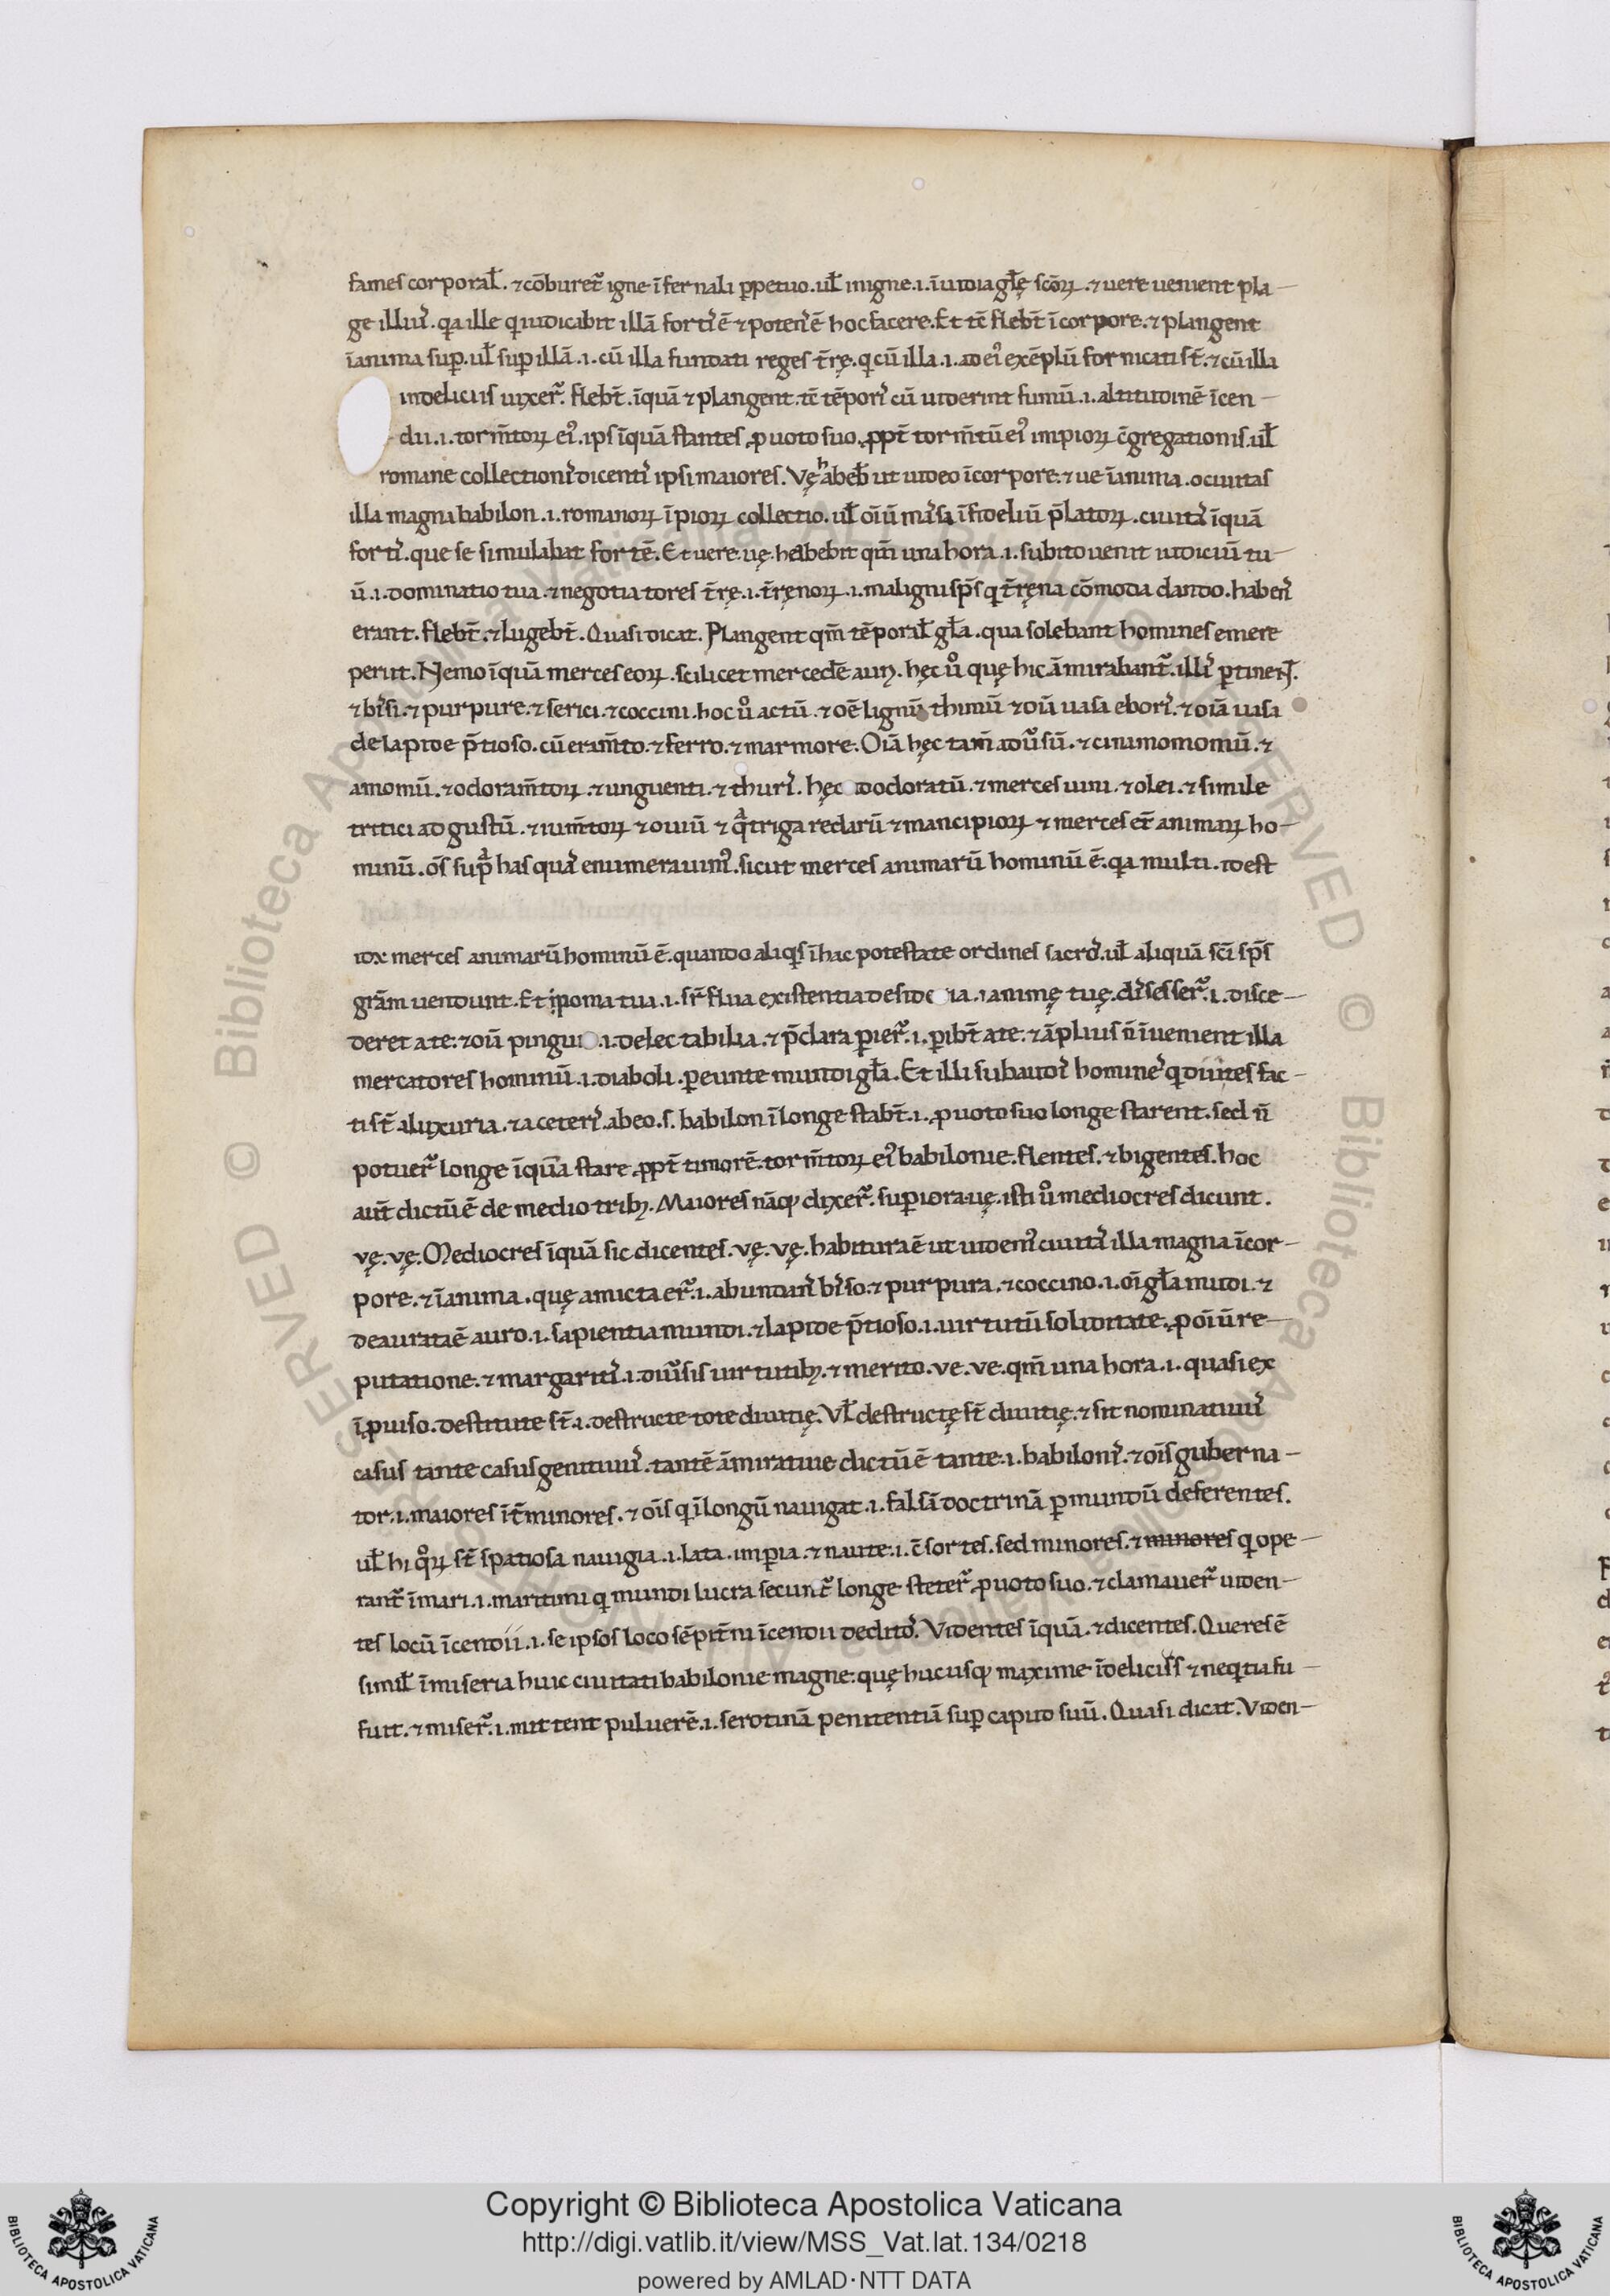 fames corporał. ⁊ cōburet᷑ igne īfernali ꝑpetuo. uł inigne .i. ī uidia głę scōꝝ. ⁊ uere uenient pla-
ge illiuſ. qa ille q iudicabit illā fortiſ ē ⁊ potenſ ē hoc facere. Et tc̄ flebt̄ ī corpore. ⁊ plangent
ī anima suꝑ. uł suꝑ illā .i. cū illa fundati reges t̄rę. q cū illa .i. ad ei᷒ exēplū fornicati st̄. ⁊ cū illa
indeliciis uixer᷑. flebt̄. īquā ⁊ plangent. tc̄ tēporiſ cū uiderint fumū .i. altitudinē īcen-
dii .i. torm̄toꝝ ei᷒. ipſi īquā stantes ꝓ uoto suo. ꝓpt̄ torm̄tū ei᷒ impioꝝ c̄gregationis. uł
romane collectioniſ dicentiſ ipsi maiores. Vę habeb̄ ut uideo ī corpore. ⁊ ue ī anima. o ciuitas
illa magna babilon .i. romanoꝝ īpioꝝ collectio. uł oīū māſa īfideliū p̄latoꝝ. ciuitaſ īquā
fortiſ. que se simulabat fortē. Et uere. uę. habebit qm̄ una hora .i. subito uenit iudiciū tu-
ū .i. dominatio tua. ⁊ negotiatores t̄rę .i. t̄ręnoꝝ .i. maligni sp̄s q t̄ręna cōmoda dando. habenſ
erant. flebt̄. ⁊ lugebt̄. Quasi dicat. Plangent qm̄ tēporał gła. qua solebant homines emere
periit. Nemo īquā merces eoꝝ. scilicet mercedē auri. hęc u᷒o quę hic āmirabant᷑. illiſ ꝑtinenſ.
⁊ biſsi. ⁊ purpure. ⁊ serici. ⁊ coccini. hoc u᷒o actū. ⁊ oē lignū thinū ⁊ oīa uasa eboriſ. ⁊ oīa uasa
de lapide p̄tioso. cū eram̄to. ⁊ ferro. ⁊ marmore. Oīa hęc tam̄ ad usū. ⁊ cinimomomū. ⁊
amomū. ⁊ odoram̄toꝝ. ⁊ unguenti. ⁊ thuriſ. hęc adodoratū. ⁊ merces uini. ⁊ olei. ⁊ simile
tritici ad gustū. ⁊ ium̄toꝝ ⁊ ouiū ⁊ qͣtriga redarū ⁊ mancipioꝝ ⁊ merces et̄ animaꝝ ho-
minū. oēs supͣ has quaſ enumerauim᷒. sicut merces animarū hominū ē. qa multi. idest
idx merces animarū hominū ē. quando aliqs ī hac potestate ordines sacroſ. uł aliquā sci sp̄s
gr̄am uendunt. Et poma tua .i. sr̄flua existentia desideria .i. animę tuę. diſcesser᷑ .i. disce-
deret a te. ⁊ oīa pinguia .i. delectabilia. ⁊ p̄clara ꝑier᷑ .i. ꝑibt̄ a te. ⁊ āplius n̄ īuenient illa
mercatores hominū .i. diaboli. ꝑeunte mundi gła. Et illi subaudiſ homineſ q diuites fac-
ti st̄ a luxuria. ⁊ a ceteriſ. ab eo .s. babilon ī longe stabt̄ .i. ꝓ uoto suo longe starent. sed n̄
potuer᷑ longe īquā stare ꝓpt̄ timorē. torm̄toꝝ ei᷒ babilonie. flentes. ⁊ bigentes. hoc
aut̄ dictū ē de medio tribꝫ. Maiores nāqꝫ dixer᷑. suꝑiora uę. isti u᷒o mediocres dicunt.
vę. vę. Mediocres īquā sic dicentes. vę. vę. habitura ē ut uidem᷒ ciuitaſ illa magna ī cor-
pore. ⁊ ī anima. quę amicta er᷑ .i. abundanſ biſso. ⁊ purpura. ⁊ coccino .i. oī gła mūdi. ⁊
deaurata ē auro .i. sapientia mundi. ⁊ lapide p̄tioso .i. uirtutū soliditate. ꝓ oīū re-
putatione. ⁊ margaritiſ .i. diu᷒sis uirtutibꝫ. ⁊ merito. ve. ve. qm̄ una hora .i. quasi ex
īꝓuiso. destitute st̄ .i. destructe tote diuitię. Vł destructę st̄ diuitię. ⁊ sit nominatiuuſ
casus tante casus genitiuuſ. tantē āmiratiue dictū ē tante .i. babiloniſ. ⁊ oīs guberna-
tor .i. maiores īt̄ minores. ⁊ oīs q ī longū nauigat .i. falsā doctrinā ꝑ mundū deferentes.
uł hi qoꝝ st̄ spatiosa nauigia .i. lata. imꝑia. ⁊ naute .i. c̄sortes. sed minores. ⁊ minores q ope-
rant᷑ ī mari .i. maritimi q mundi lucra secunt᷑ longe steter᷑ ꝓ uoto suo. ⁊ clamauer᷑ uiden-
tes locū īcendii .i. se ipsos loco sēpit̄ni īcendii deditoſ. Videntes īquā. ⁊ dicentes. Queres ē
simił ī miseria huic ciuitati babilonie magne. quę hucusqꝫ maxime ī deliciis ⁊ neqtia fu-
fuit. ⁊ miser᷑ .i. mittent puluerē .i. serotinā penitentiā suꝑ capud suū. Quasi dicat. Viden-
Copyright © Biblioteca Apostolica Vaticana
http://digi.vatlib.it/view/MSS_Vat.lat.134/0218
powered by AMLAD·NTT DATA